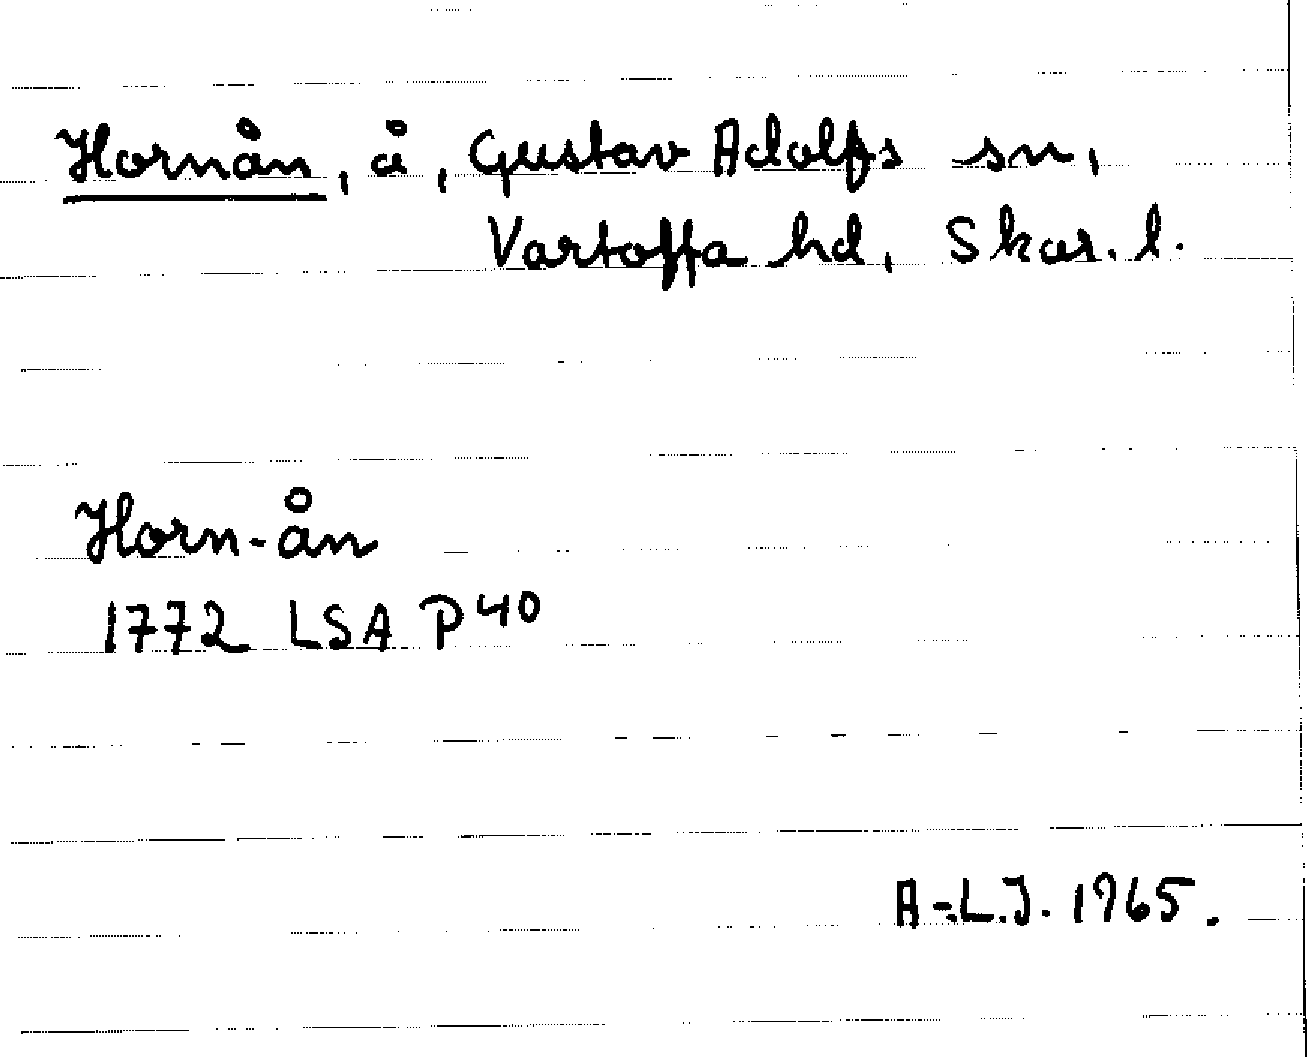 Hornån, å, Gustav Adolfs sn,
Vartofta hd, Skar. l.
Horn-ån
1772 LSA P 40
A-L.J. 1965.